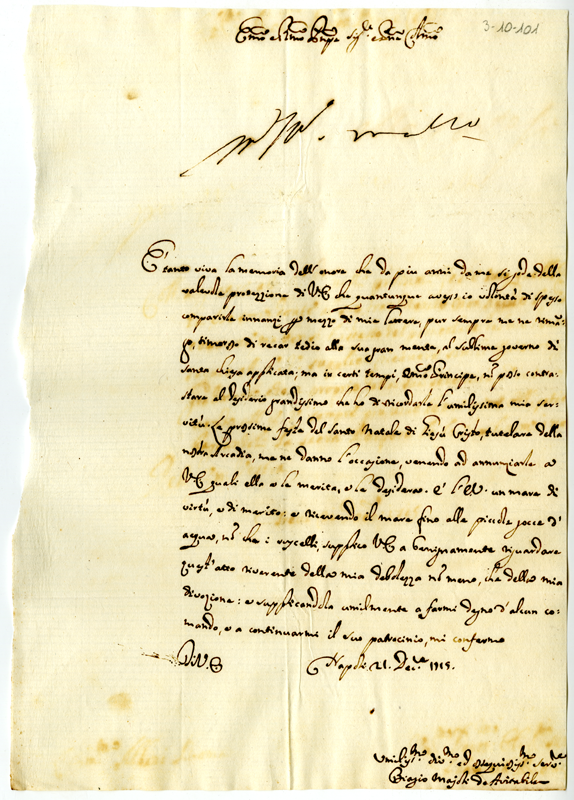 3-10-101
Em̃o e Rm̃o Prñpe Sig.re e Pñe Colm̃o
E' tanto viva la memoria dell'onore che da piu anni da me si gode della
valevole protezzione di V.E. che quantunque avess'io volontà di spesso
comparirle innanzi per mezzo di mie lettere, pur sempre me ne riman-
go, timoroso di recar tedio alla sua gran mente, al sublime governo di
santa chiesa applicata; ma in certi tempi, Em̃o Principe, nõ posso contra-
stare al desiderio grandissimo che ho di ricordarle l'umilissima mia ser-
vitù. Le prossime feste del Santo Natale di Giesù Cristo, tutelare della
nostra Arcadia, me ne danno l'occasione, venendo ad annunziarle a
V.E. quali ella o le merita, o le desidera. E' l'E.V. un mare di
virtù, e di merito: e ricevendo il mare fino alle picciole gocce d'
acqua, nõ che i ruscelli, supplico V.E. a benignamente riguardare
quest'atto riverente della mia debolezza nõ meno, che della mia
divozione: e supplicandola umilmente a farmi degno d'alcun co-
mando, e a continuarmi il suo patrocinio, mi confermo
Di V.E. Napoli 21. Dec.e 1715.
Umiliss.mo div.mo ed osequiosiss.mo serv.e
Biagio Majoli de Avitabile